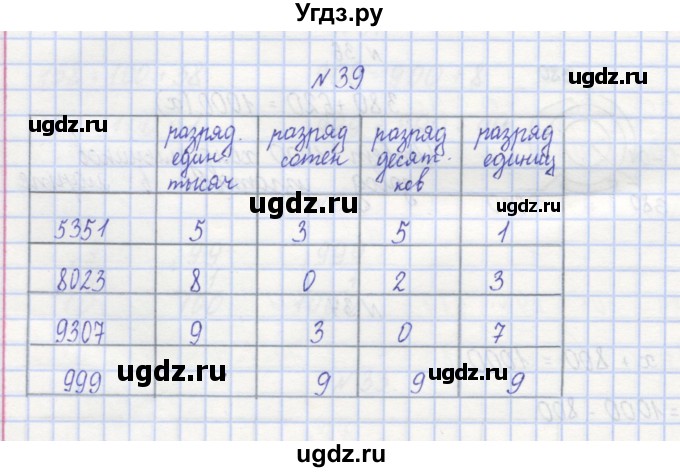 Угдз.ру
№ 39
ugdz.ru
разряд. един. тысяч
разряд сотен
разряд десят. ков
разряд единиц
ugdz.ru
ugdz.ru
5351 5 3 5 1
8023 8 0 2 3
ugdz.ru
ugdz.ru
9307 9 3 0 7
ugdz.ru
ugdz.ru
999 9 9 9
ugdz.ru